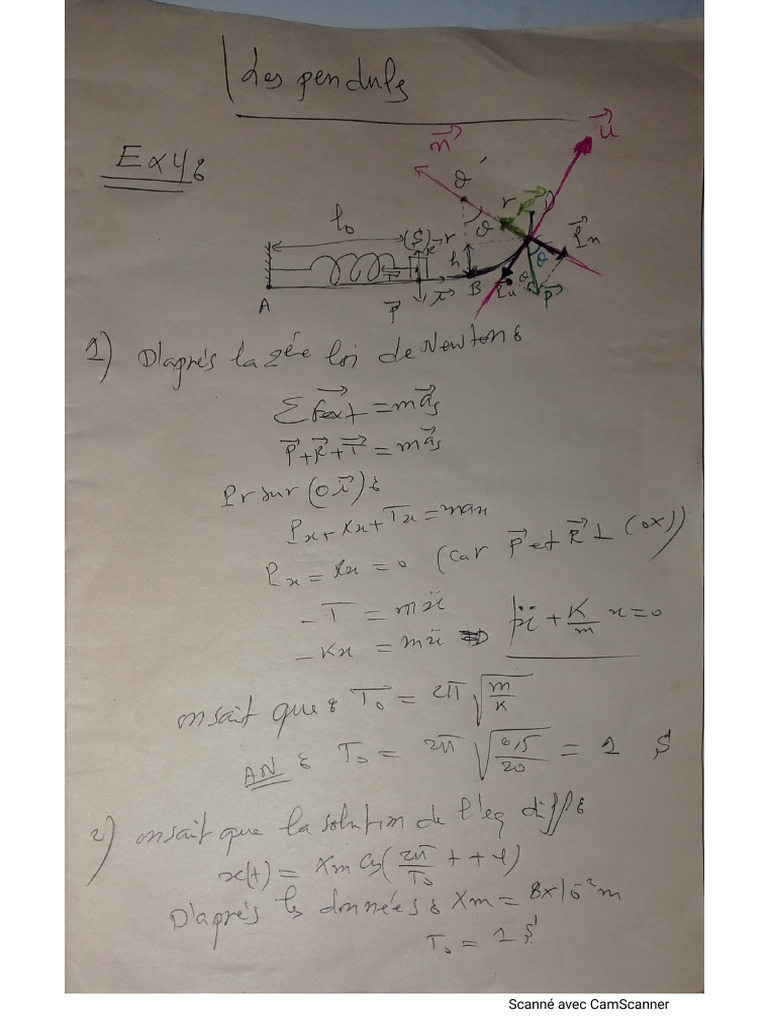 Les penduls
Ex 4:
n
u
O'
r
θ
l₀
(S)
R
r
h
θ
Pn
A
P
x
B
Pu
θ
P
1) D'aprés la 2éme loi de Newton:
Σ Fext = m a_s
P + R + T = m a_s
Pr sur (O x):
Px + Rx + Tx = max
Px = Rx = 0 (car P et R ⊥ (ox))
- T = mẍ
- Kx = mẍ ⇒ ẍ + K/m x = 0
on sait que: T₀ = 2π √(m/K)
AN: T₀ = 2π √(0,5/20) = 1 S
2) on sait que la solution de l'eq diff:
x(t) = Xm Cos(2π/T₀ t + φ)
D'aprés les données: Xm = 8x10⁻² m
T₀ = 1 S
Scanné avec CamScanner